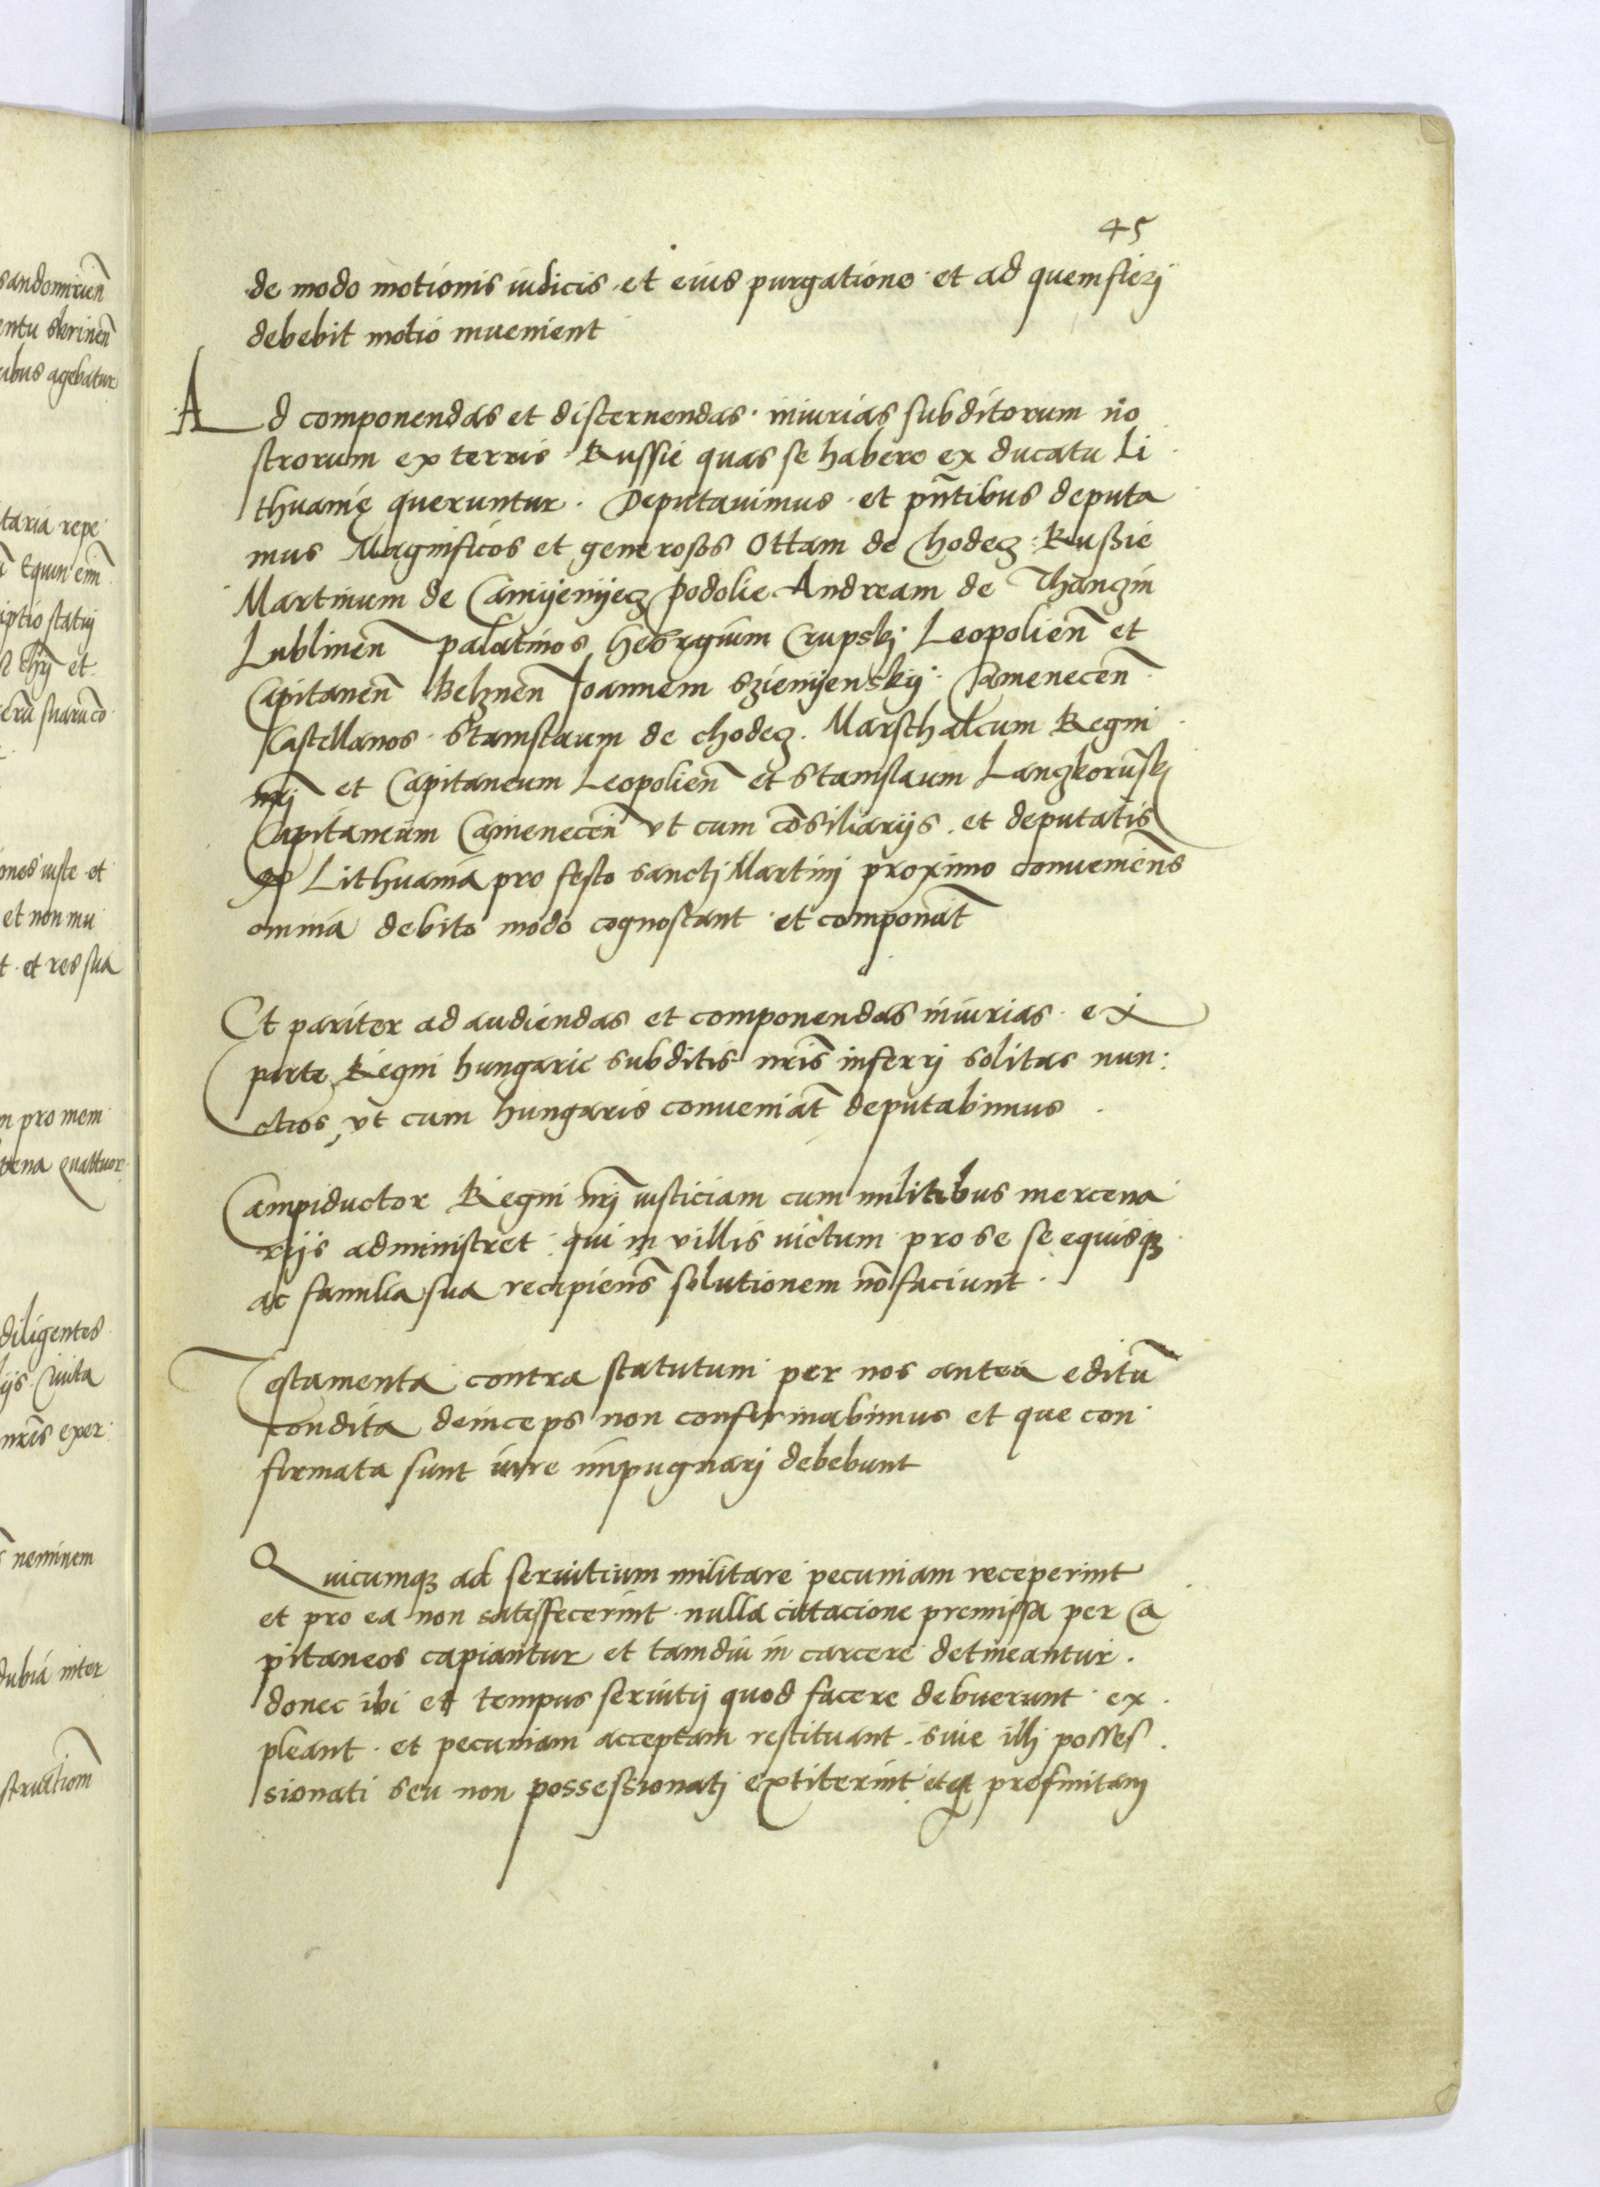 45
de modo motionis iudicis et eius purgatione et ad quem fieri
debebit motio invenient
Ad componendas et discernendas iniurias subditorum no
strorum ex terris Russie quas se habere ex ducatu Li
thuanię queruntur. Deputavimus et pn̄tibus deputa
mus Magnificos et generosos Ottam de Chodecz Russie
Martinum de Camyenyecz Podolie Andream de Thanczin
Lublinen̄ palatinos, Heorgium Crupski Leopolien̄ et
Capitanen̄ Belznen̄ Joannem Szienyenskij Camenecen̄
Castellanos Stanislaum de Chodecz. Marschalcum Regni
nr̄i et Capitaneum Leopolien̄ et Stanislaum Langkorūski
Capitaneum Camenecen̄ ut cum cōsiliariis et deputatis
Lithuania pro festo sancti Martini proximo convenien̄s
omnia debito modo cognoscant et componāt
Et pariter ad audiendas et componendas iniurias ex
parte Regni hungarie subditis nr̄is inferri solitas nun
ctios, ut cum hungaris conveniāt deputabimus
Campiductor Regni nr̄i iusticiam cum militibus mercena
riis administret qui in villis victum pro se se equisqꝫ
ac familia sua recipien̄s solutionem nō faciunt.
Testamenta contra statutum per nos antea editū
condita deinceps non confirmabimus et que con
firmata sunt iure impugnari debebunt
Quicumqꝫ ad servitium militare pecuniam receperint
et pro ea non satisfecerint nulla citacione premissa per Ca
pitaneos capiantur et tamdiu in carcere detineantur.
donec ibi et tempus servitii quod facere debuerunt ex
pleant et pecuniam acceptam restituant. sive illi posses
sionati seu non possessionati extiterint et prefinitam